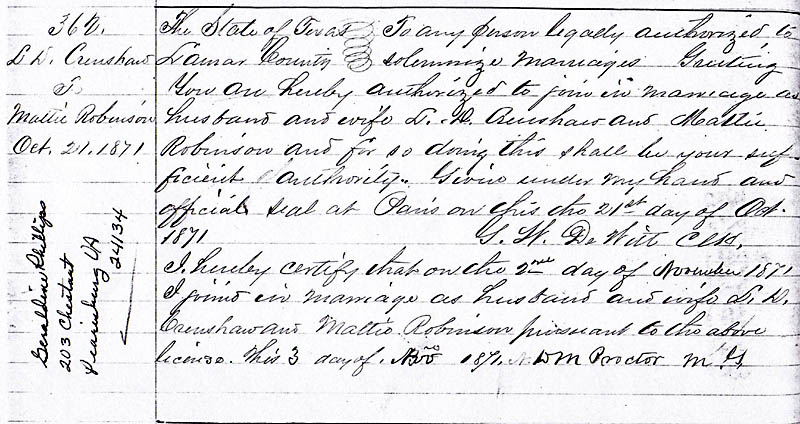 362.
L D. Crenshaw
To
Mattie Robinson
Oct. 21. 1871
The State of Texas To any person legally authorized to
Lamar County solemnize marriages Greeting
You are hereby authorized to join in marriage as
husband and wife L. D. Crenshaw and Mattie
Robinson and for so doing this shall be your suf-
ficient authority. Given under my hand and
official seal at Paris on this the 21st day of Oct.
1871 G. W. De Witt Clk.
I hereby certify that on the 2nd day of November 1871
I joined in marriage as husband and wife L. D.
Crenshaw and Mattie Robinson pursuant to the above
license. This 3 day of. Nov 1871. W M Proctor M G
Geraldine Phillips
203 Chestnut
Pearisburg VA
24134